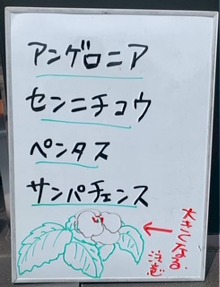 アンゲロニア
センニチコウ
ペンタス
サンパチェンス
大きくなる
注意